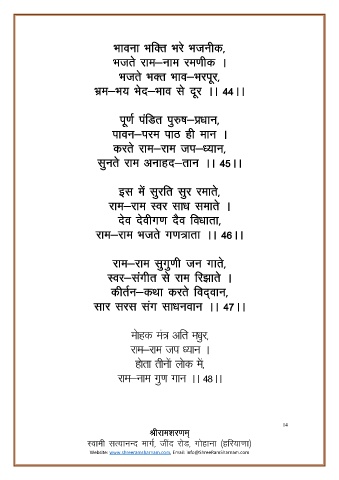 भावना भक्ति भरे भजनीक,
भजते राम–नाम रमणीक ।
भजते भक्त भाव–भरपूर,
भ्रम–भय भेद–भाव से दूर ।। 44।।
पूर्ण पंडित पुरुष–प्रधान,
पावन–परम पाठ ही मान ।
करते राम–राम जप–ध्यान,
सुनते राम अनाहद–तान ।। 45।।
इस में सुरति सुर रमाते,
राम–राम स्वर साध समाते ।
देव देवीगण दैव विधाता,
राम–राम भजते गणत्राता ।। 46।।
राम–राम सुगुणी जन गाते,
स्वर–संगीत से राम रिझाते ।
कीर्तन–कथा करते विद्वान,
सार सरस संग साधनवान ।। 47।।
मोहक मंत्र अति मधुर,
राम–राम जप ध्यान ।
होता तीनों लोक में,
राम–नाम गुण गान ।। 48।।
14
श्रीरामशरणम्
स्वामी सत्यानन्द मार्ग, जींद रोड, गोहाना (हरियाणा)
Website: www.shreeramsharnam.com, Email: info@ShreeRamSharnam.com